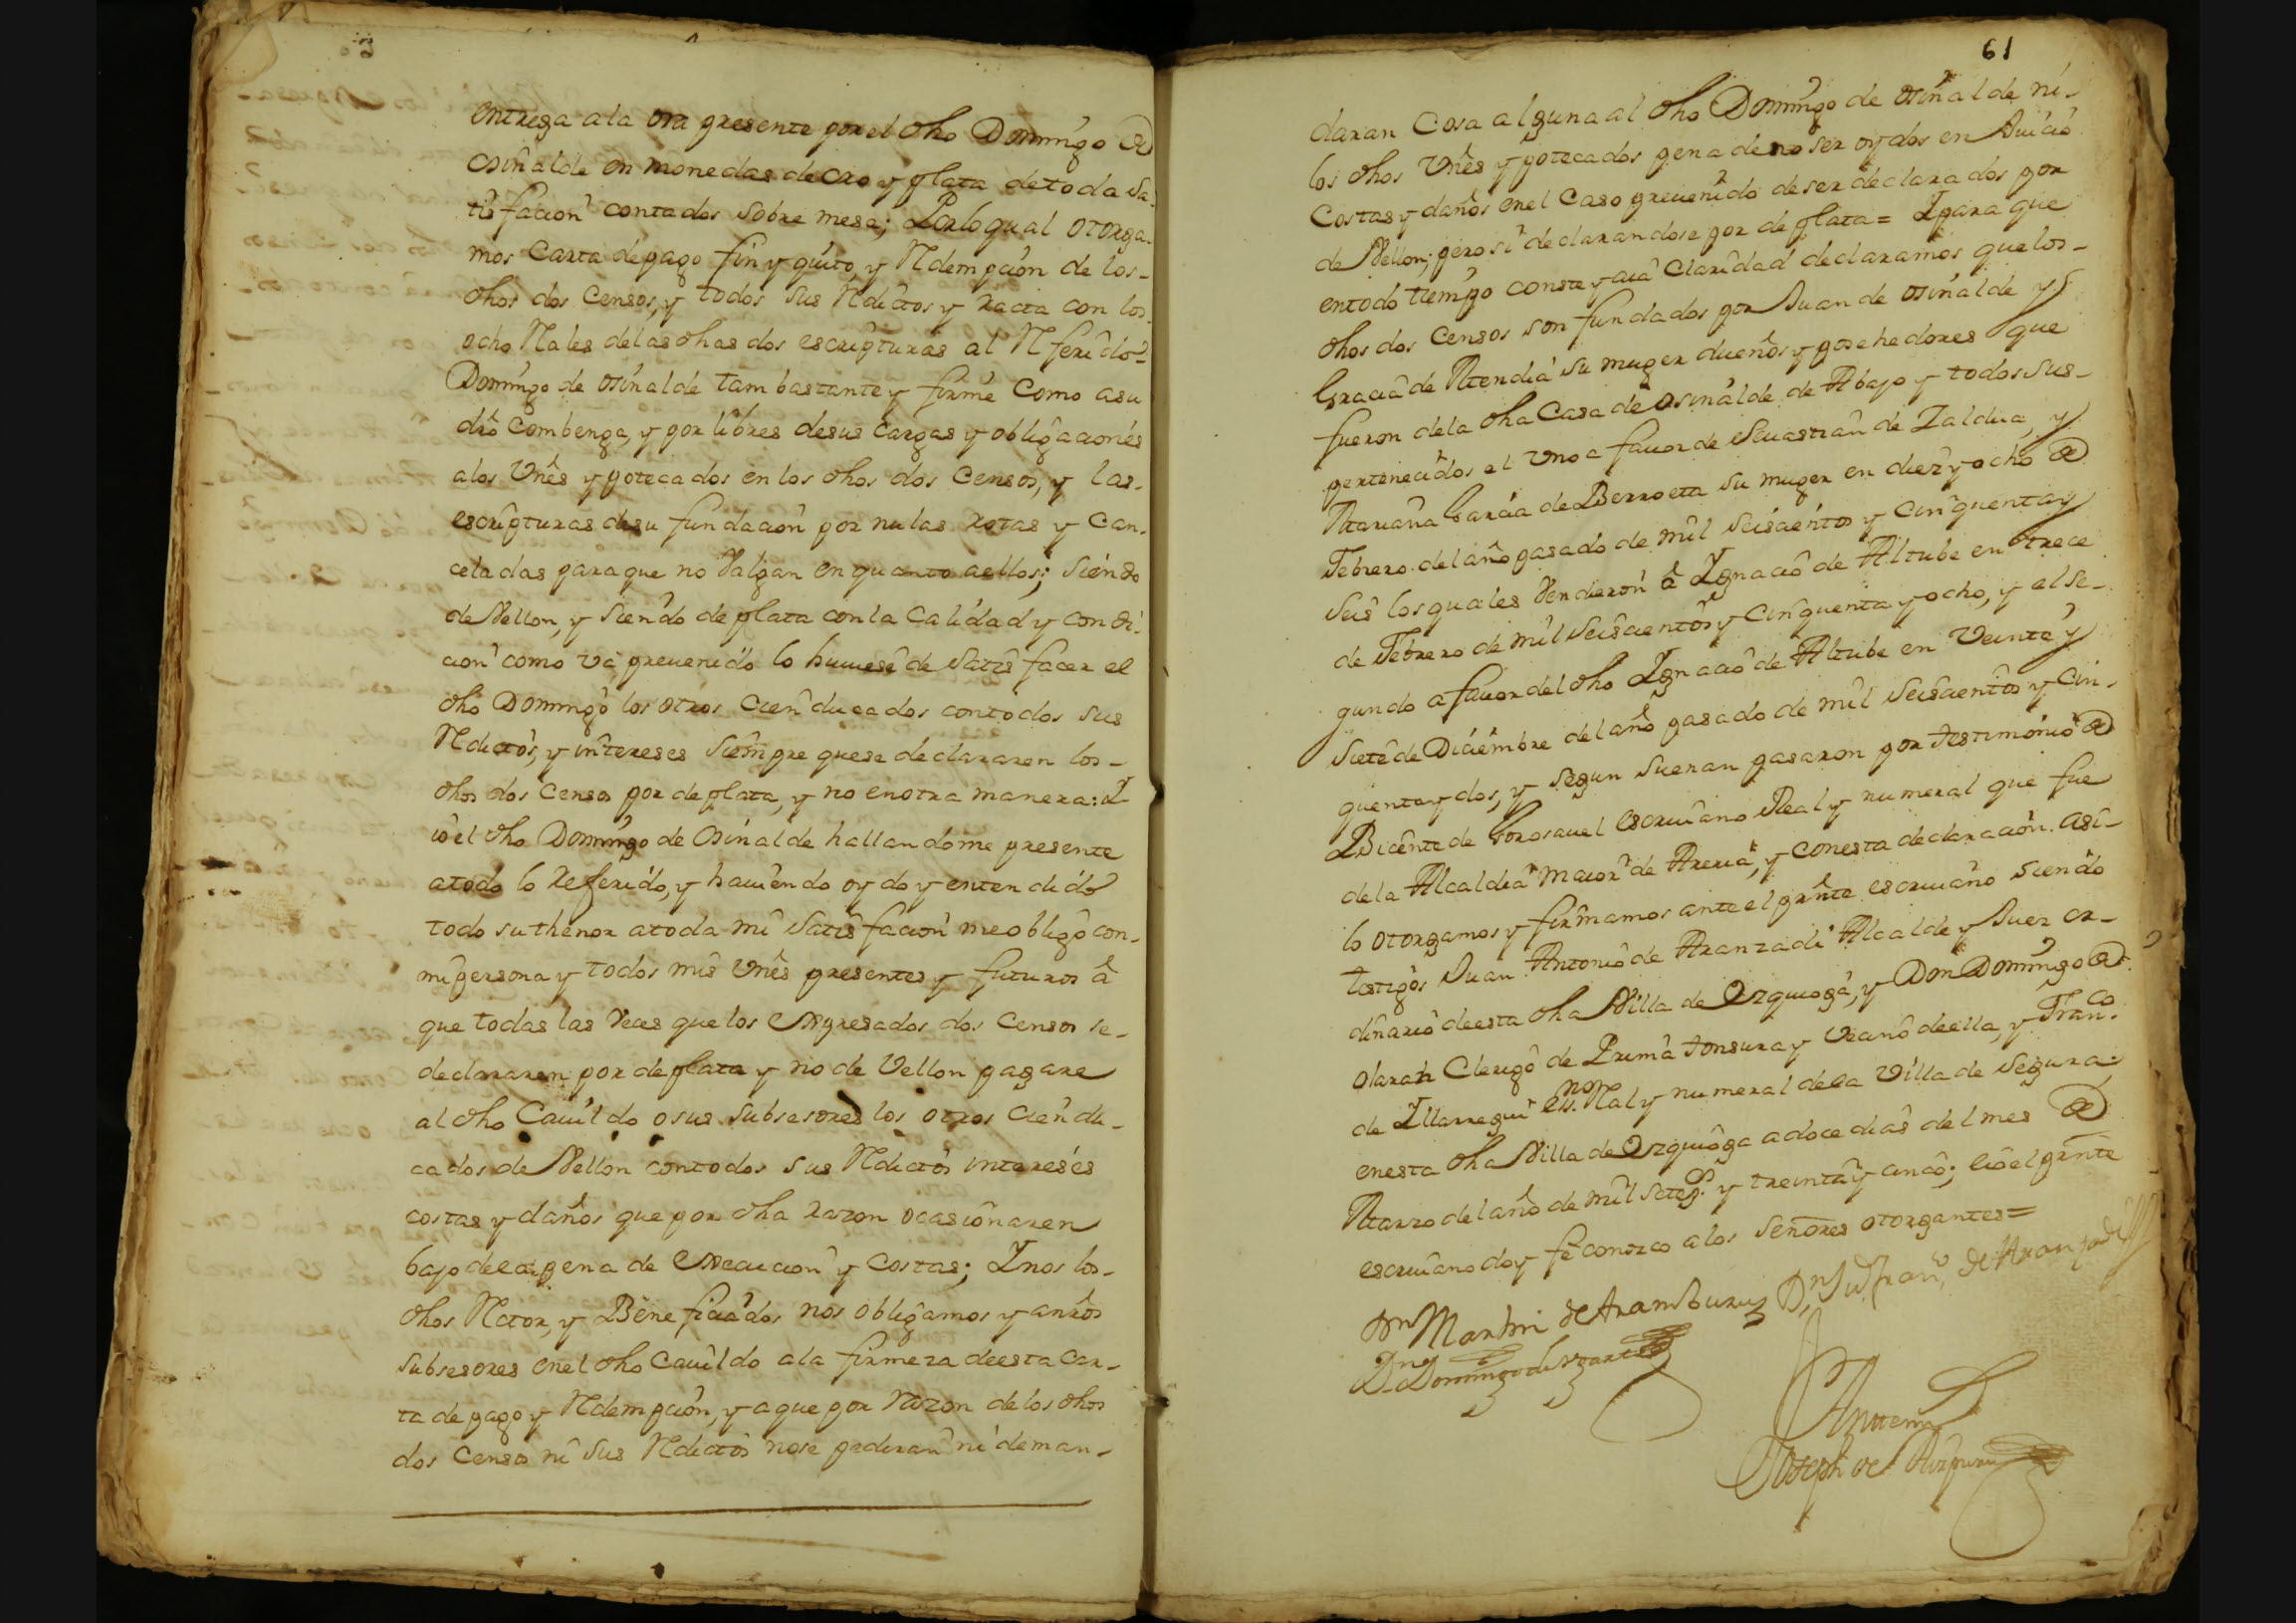 entrega ala ora presente por el dho Domingo de
Osinalde en monedas de oro y plata de toda sa-
tisfacion contados sobre mesa; Por lo qual otorga-
mos Carta de pago fin y quito, y Redempcion de los
dhos dos Censos, y todos sus Reditos y rata con los
ocho Rales delas dhas dos escripturas al Referido
Domingo de Osinalde tam bastante y firme Como asu
dro Combenga, y por libres desus Cargas y obligaciones
alos Vnes ypotecados en los dhos dos Censos, y las
escripturas desu fundacion por nulas rotas y Can-
celadas paraque no Valgan en quanto aellos; siendo
de Vellon, y siendo de plata con la Calidad y condi-
cion como va preuenido lo huuese de Satisfacer el
dho Domingo los otros Cien ducados contodos sus
Reditos, y intereses siempre quese declararen los
dhos dos Censos por de plata, y no enotra manera: Y
io el dho Domingo de Osinalde hallandome presente
atodo lo Referido, y hauiendo oydo y entendido
todo su thenor atoda mi Satisfacion me obligo con
mi persona y todos mis Vnes presentes y futuros â
que todas las Veces que los expresados dos Censos se
declararen por de plata y no de Vellon pagare
al dho Cauildo o sus subsesores los otros Cien du-
cados de Vellon contodos sus Reditos intereses
costas y daños que por dha razon ocasionaren
bajo dela pena de execucion y Costas; Y nos los
dhos Rector, y Beneficiados nos obligamos y anros
subsesores enel dho Cauildo ala firmeza deesta Car-
ta de pago y Redempcion, y aque por Razon delos dhos
dos Censos ni sus Reditos nose pediran ni deman-
61
daran Cosa alguna al dho Domingo de Osinalde ni
los dhos Vnes ypotecados pena deno ser oydos en Juicio
Costas y daños enel Caso preuenido de ser declarados por
de Vellon; pero si declarandose por de plata= Y para que
entodo tiempo conste y aia Claridad declaramos que los
dhos dos Censos son fundados por Juan de Osinalde y
Gracia de Mendia su muger dueños y posehedores que
fueron dela dha Casa de Osinalde de Abajo y todos sus
pertenecidos el Vno a fauor de Seuastian de Zaldua, y
Mariana Garcia de Berroeta su muger en diez y ocho de
Febrero del año pasado de mil Seiscientos y Cinquenta y
Seis los quales Vendieron â Ygnacio de Altube en trece
de Febrero de mil Seiscientos y Cinquenta y ocho, y el se-
gundo a fauor del dho Ygnacio de Altube en Veinte y
siete de Diciembre del año pasado de mil Seiscientos y Cin-
quenta y dos, y segun suenan pasaron por testimonio de
Bicente de Gorosauel escriuano Real y numeral que fue
dela Alcaldia maior de Areria, y conesta declaracion asi
lo otorgamos y firmamos ante el prnte escriuano siendo
testigos Juan Antonio de Aranzadi Alcalde y Juez or-
dinario deesta dha Villa de Ezquioga, y Don Domingo de
Olaran Clerigo de Prima tonsura y Vecino deella, y Franco.
de Yllarregui essno. Ral y numeral dela Villa de Segura
enesta dha Villa de Ezquioga adoce dias del mes de
Marzo del año de mil Setes. y treinta y cinco; eio el prnte
escriuano doy fe conozco alos Señores otorgantes=
Dn Martin de Aramburu Dn Ju Fran. de Aranzadi
Dn Domingo de
Antemi
Joseph de Aizpuru